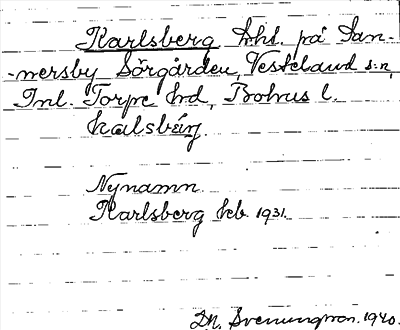 Karlsberg lhl. på San-
-nersby Sörgården, Västerland s:n,
Inl. Torpe hd, Bohus l.
kalsbärj.
Nynamn
Karlsberg Jeb. 1931.
D.N. Svenungsson. 1940.